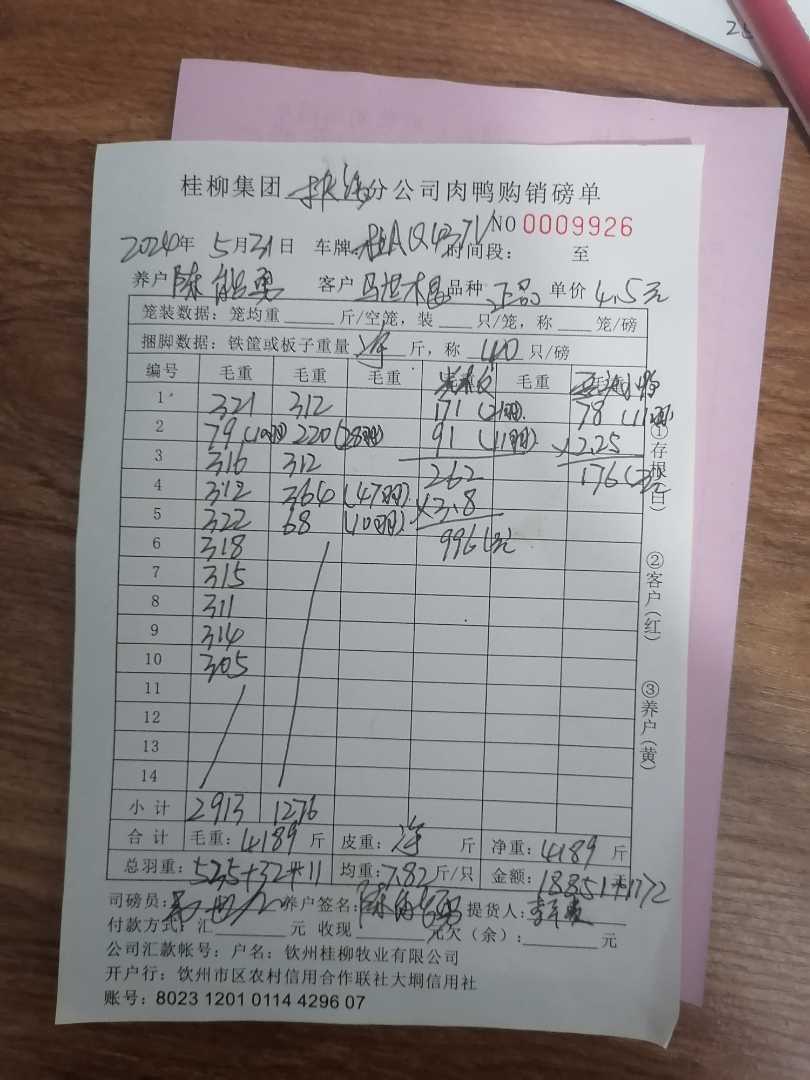 桂柳集团 分公司肉鸭购销磅单
NO 0009926
2024年 5月31日 车牌: 桂AQ437V 时间段: 至
养户 陈 勇 客户 品种 正品 单价 4.5元
笼装数据: 笼均重 斤/空笼, 装 只/笼, 称 笼/磅
捆脚数据: 铁筐或板子重量 净 斤, 称 40 只/磅
编号 毛重 毛重 毛重 毛重
1 321 312 171 (21羽) 78 (11羽)
2 79 (10羽) 220 (28羽) 91 (11羽) ×2.25
3 316 312 262 176(元)
4 312 364 (47羽) ×3.8
5 322 68 (10羽) 996(元)
6 318
7 315
8 311
9 314
10 305
11
12
13
14
小计 2913 1276
合计 毛重: 4189 斤 皮重: 净 斤 净重: 4189 斤
总羽重: 525+32+11 均重: 7.82 斤/只 金额: 18851+1172
司磅员: 养户签名: 陈 勇 提货人:
付款方式: 汇 元 收现 元欠(余): 元
公司汇款帐号: 户名: 钦州桂柳牧业有限公司
开户行: 钦州市区农村信用合作联社大垌信用社
账号: 8023 1201 0114 4296 07
①存根(白)
②客户(红)
③养户(黄)